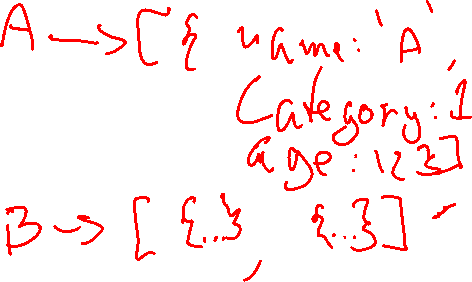 A → [ { name: 'A',
Category: 1
age: 123]
B → [ {..}, {..} ]